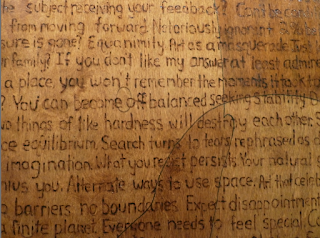 subject receiving your feedback? Can't be
from moving forward. Notoriously ignorant
sure is gone? Equanimity. Art as a masquerade. Just
r family? If you don't like my answer at least admire
a place, you won't remember the moments it took to
? You can become off balanced seeking stability.
wo things of like hardness will destroy each other. S
ce equilibrium. Search turns to tears rephrased as
imagination. What you resist persists. Your natural
nius you. Alternate ways to use space. Art that celeb
o barriers, no boundaries. Expect disappointment
a finite planet. Everyone needs to feel special. Co